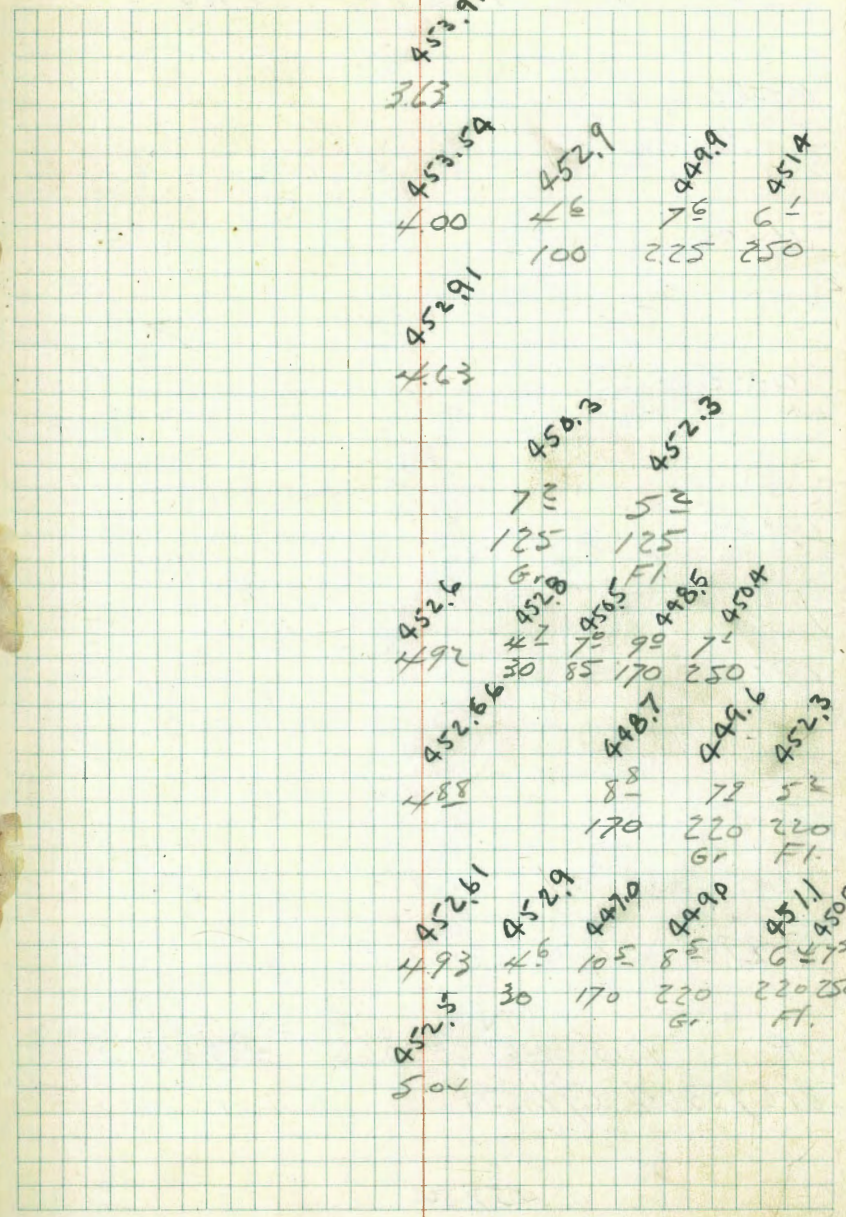 453.9
3.63
453.54 452.9 449.9 451.4
4.00 4 6 7 6 6 1
100 225 250
452.91
4.63
450.3 452.3
7 2 5 2
125 125
Gr Fl.
452.6 452.8 450.5 448.5 450.4
4.92 4 7 7 0 9 0 7 1
30 85 170 250
452.66 448.7 449.6 452.3
4 88 8 8 7 9 5 2
170 220 220
Gr Fl.
452.61 452.9 447.0 449.0 451.1 450.
4.93 4 6 10 5 8 5 6 4 7
30 170 220 220 250
Gr. Fl.
452.5
5.04